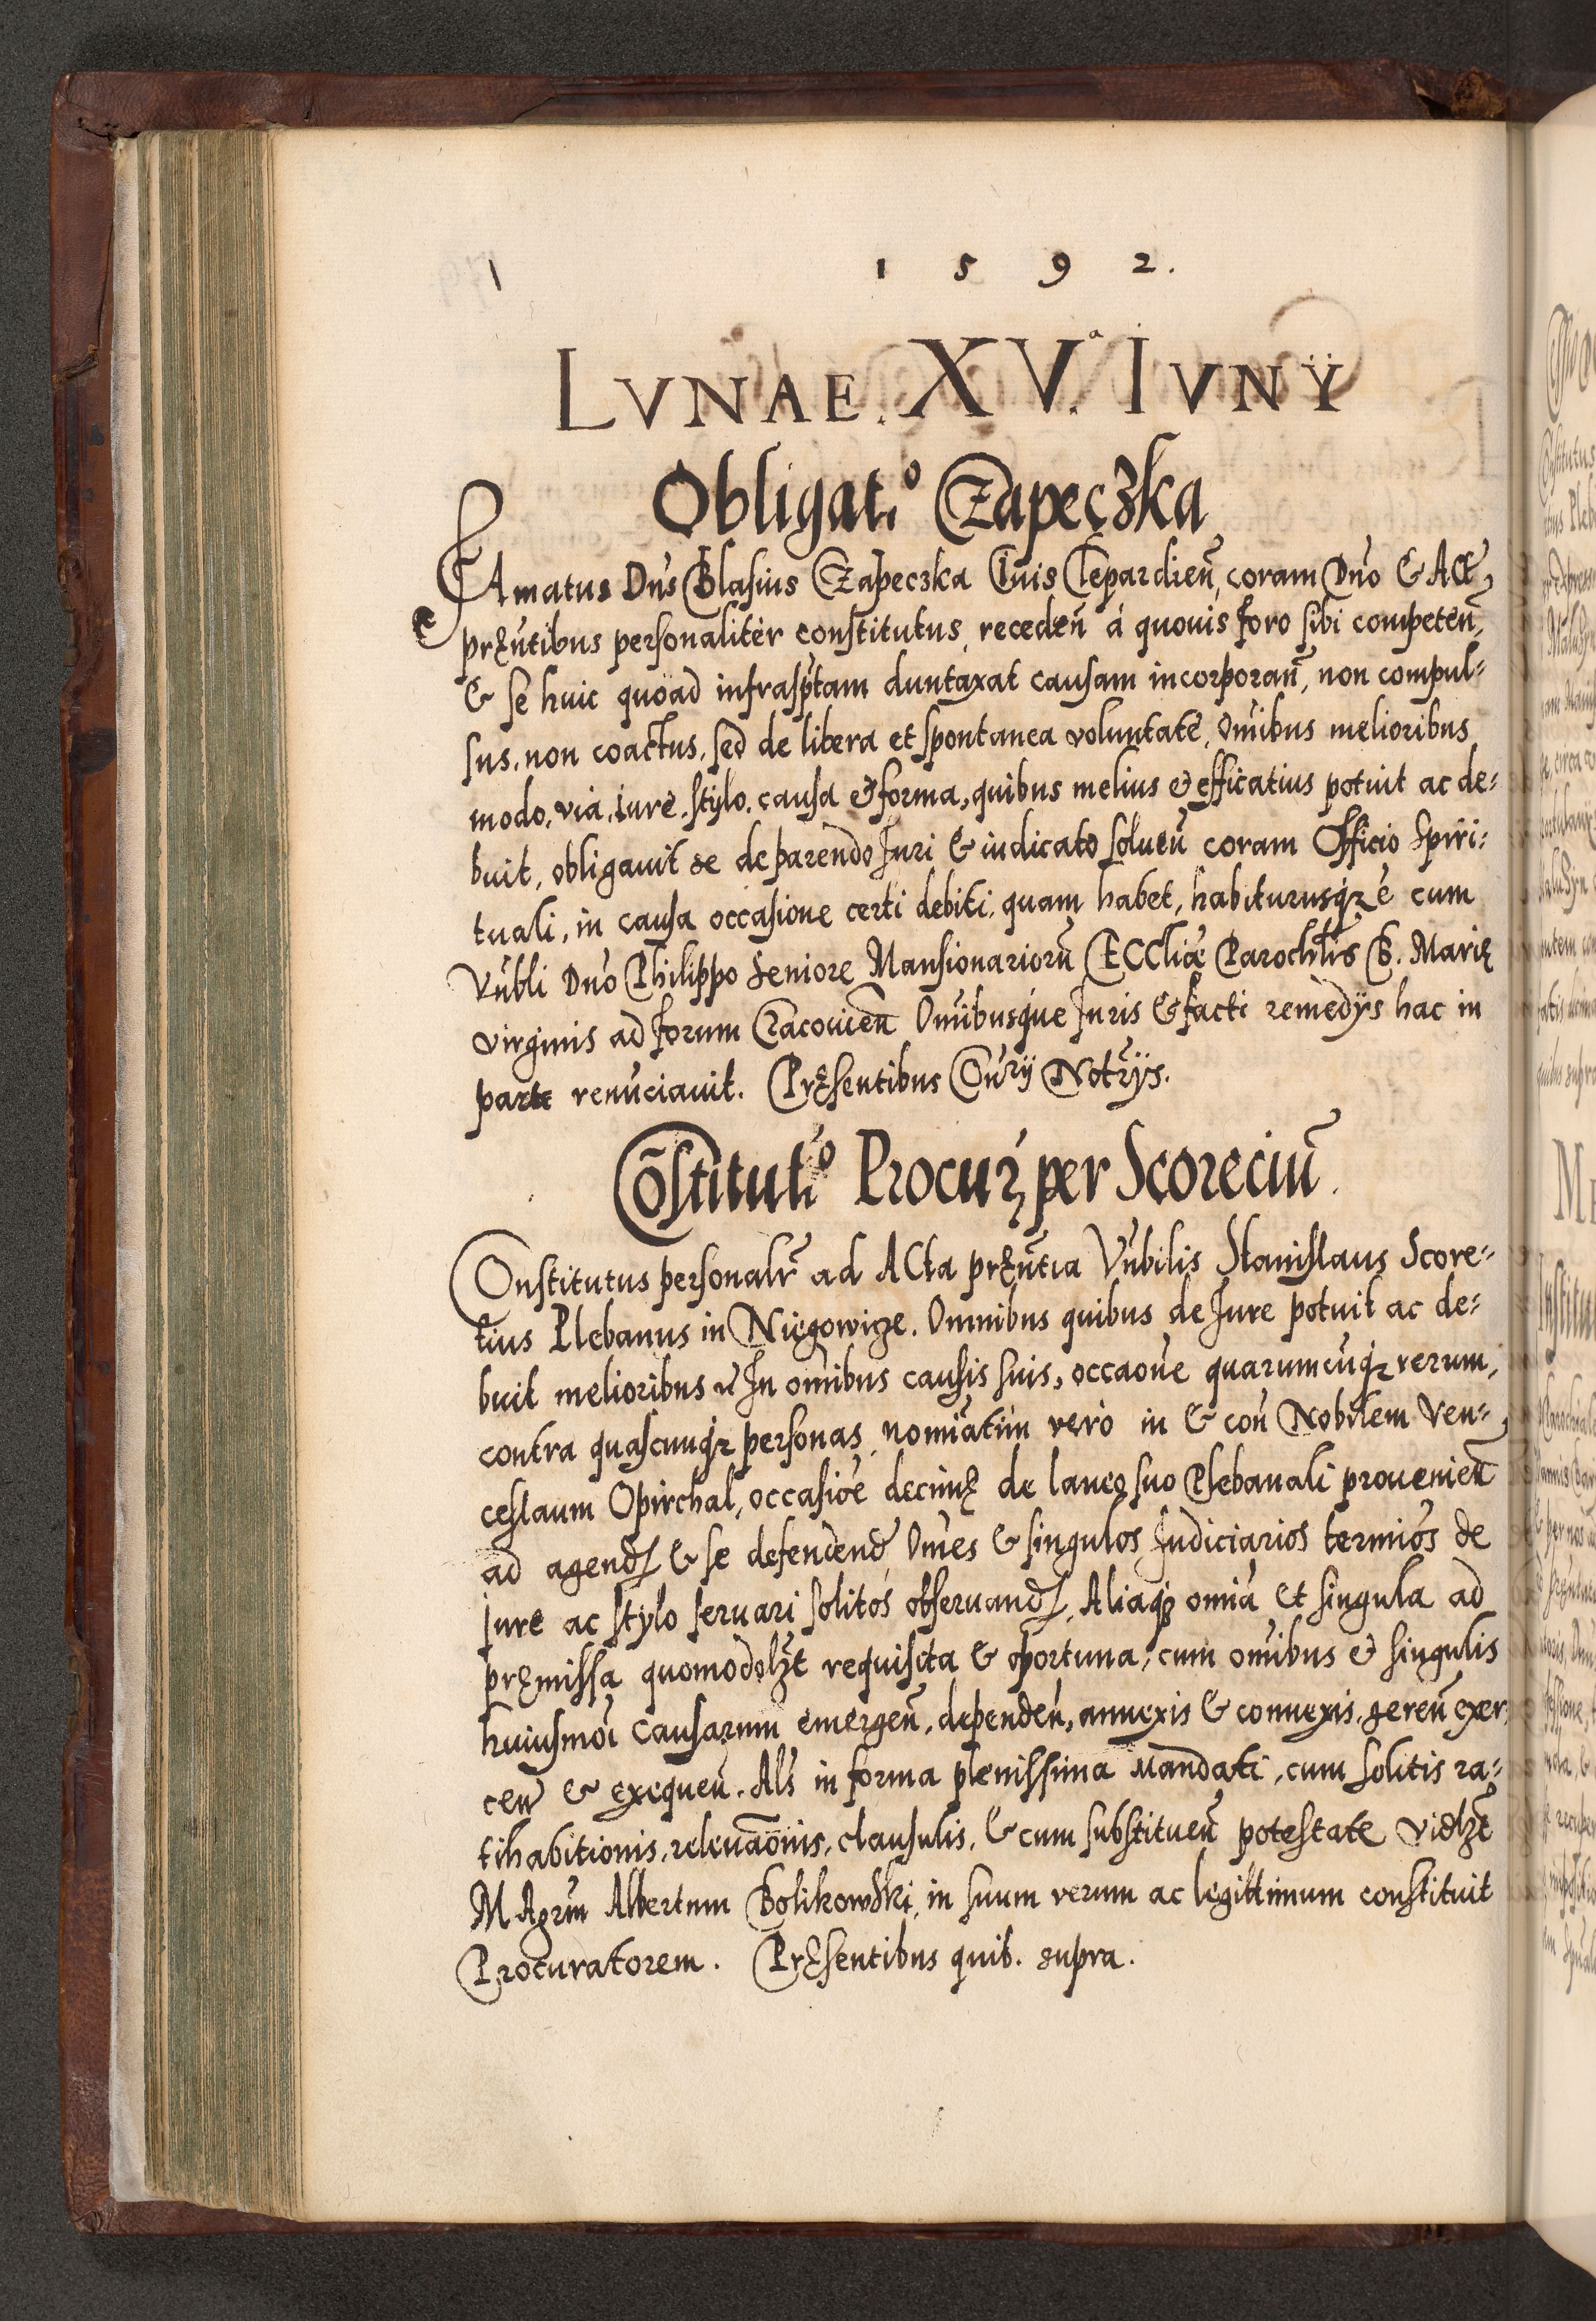 1592.
LVNAE. XV.ª IVNŸ
Obligat.º Czapeczka
FAmatus Dn̄s Blasius Czapeczka Ciuis Clepardien̄, coram Dn̄o & Act̄,
prȩn̄tibus personalitèr constitutus, receden̄ à quouis foro sibi competen̄,
& se huic quoad infrasp̄tam duntaxat causam incorporan̄, non compul⸗
sus, non coactus, sed de libera et spontanea voluntate, om̄ibus melioribus
modo, via, iure, stylo, causa & forma, quibus melius & efficatius potuit ac de⸗
buit, obligauit se de parendo Juri & iudicato soluen̄ coram Officio Spiri⸗
tuali, in causa occasione certi debiti, quam habet, habiturusq́ȝ ē cum
Vn̄bli Dn̄o Philippo Seniore Mansionariorū ECClīæ Parochl̄is S. Mariȩ
virginis ad forum Cracouien̄ Om̄ibusq́ue Juris & facti remedÿs hac in
parte renūciauit. Prȩsentibus Cur̄ij Notr̄ÿs.
Cōstitut.º Procur̄ per Scoreciū.
COnstitutus personalr̄ ad ACta prȩn̄tia Vn̄bilis Stanislaus Score⸗
tius Plebanus in Niegowicze. Omnibus quibus de Jure potuit ac de⸗
buit melioribus & In om̄ibus causis suis, occaōne quarumcūq́ȝ rerum,
contra quascunq́ȝ personas, nomīatim verò in & con̄ Nobilem Ven⸗
ceslaum Opirchal, occasiōe decimȩ de laneo suo Plebanali prouenien̄
ad agend̄ & se defendend̄ Om̄es & singulos Judiciarios termīos de
Jure ac stylo seruari solitos obseruand̄, Aliaq́ȝ om̄ia et singula ad
prȩmissa quomodolȝt requisita & oportuna, cum om̄ibus & singulis
huiusmōi causarum emergen̄, dependen̄, annexis & connexis, geren̄ exer
cen̄ & exequen̄. Al̄s in forma plenissima Mandati, cum solitis ra⸗
tihabitionis, releuāōnis, clausulis, & cum substituen̄ potestate vidlȝt
MAgrm̄ Albertum Bolikowski, in suum verum ac legittimum constituit
Procuratorem. Prȩsentibus quib. supra.